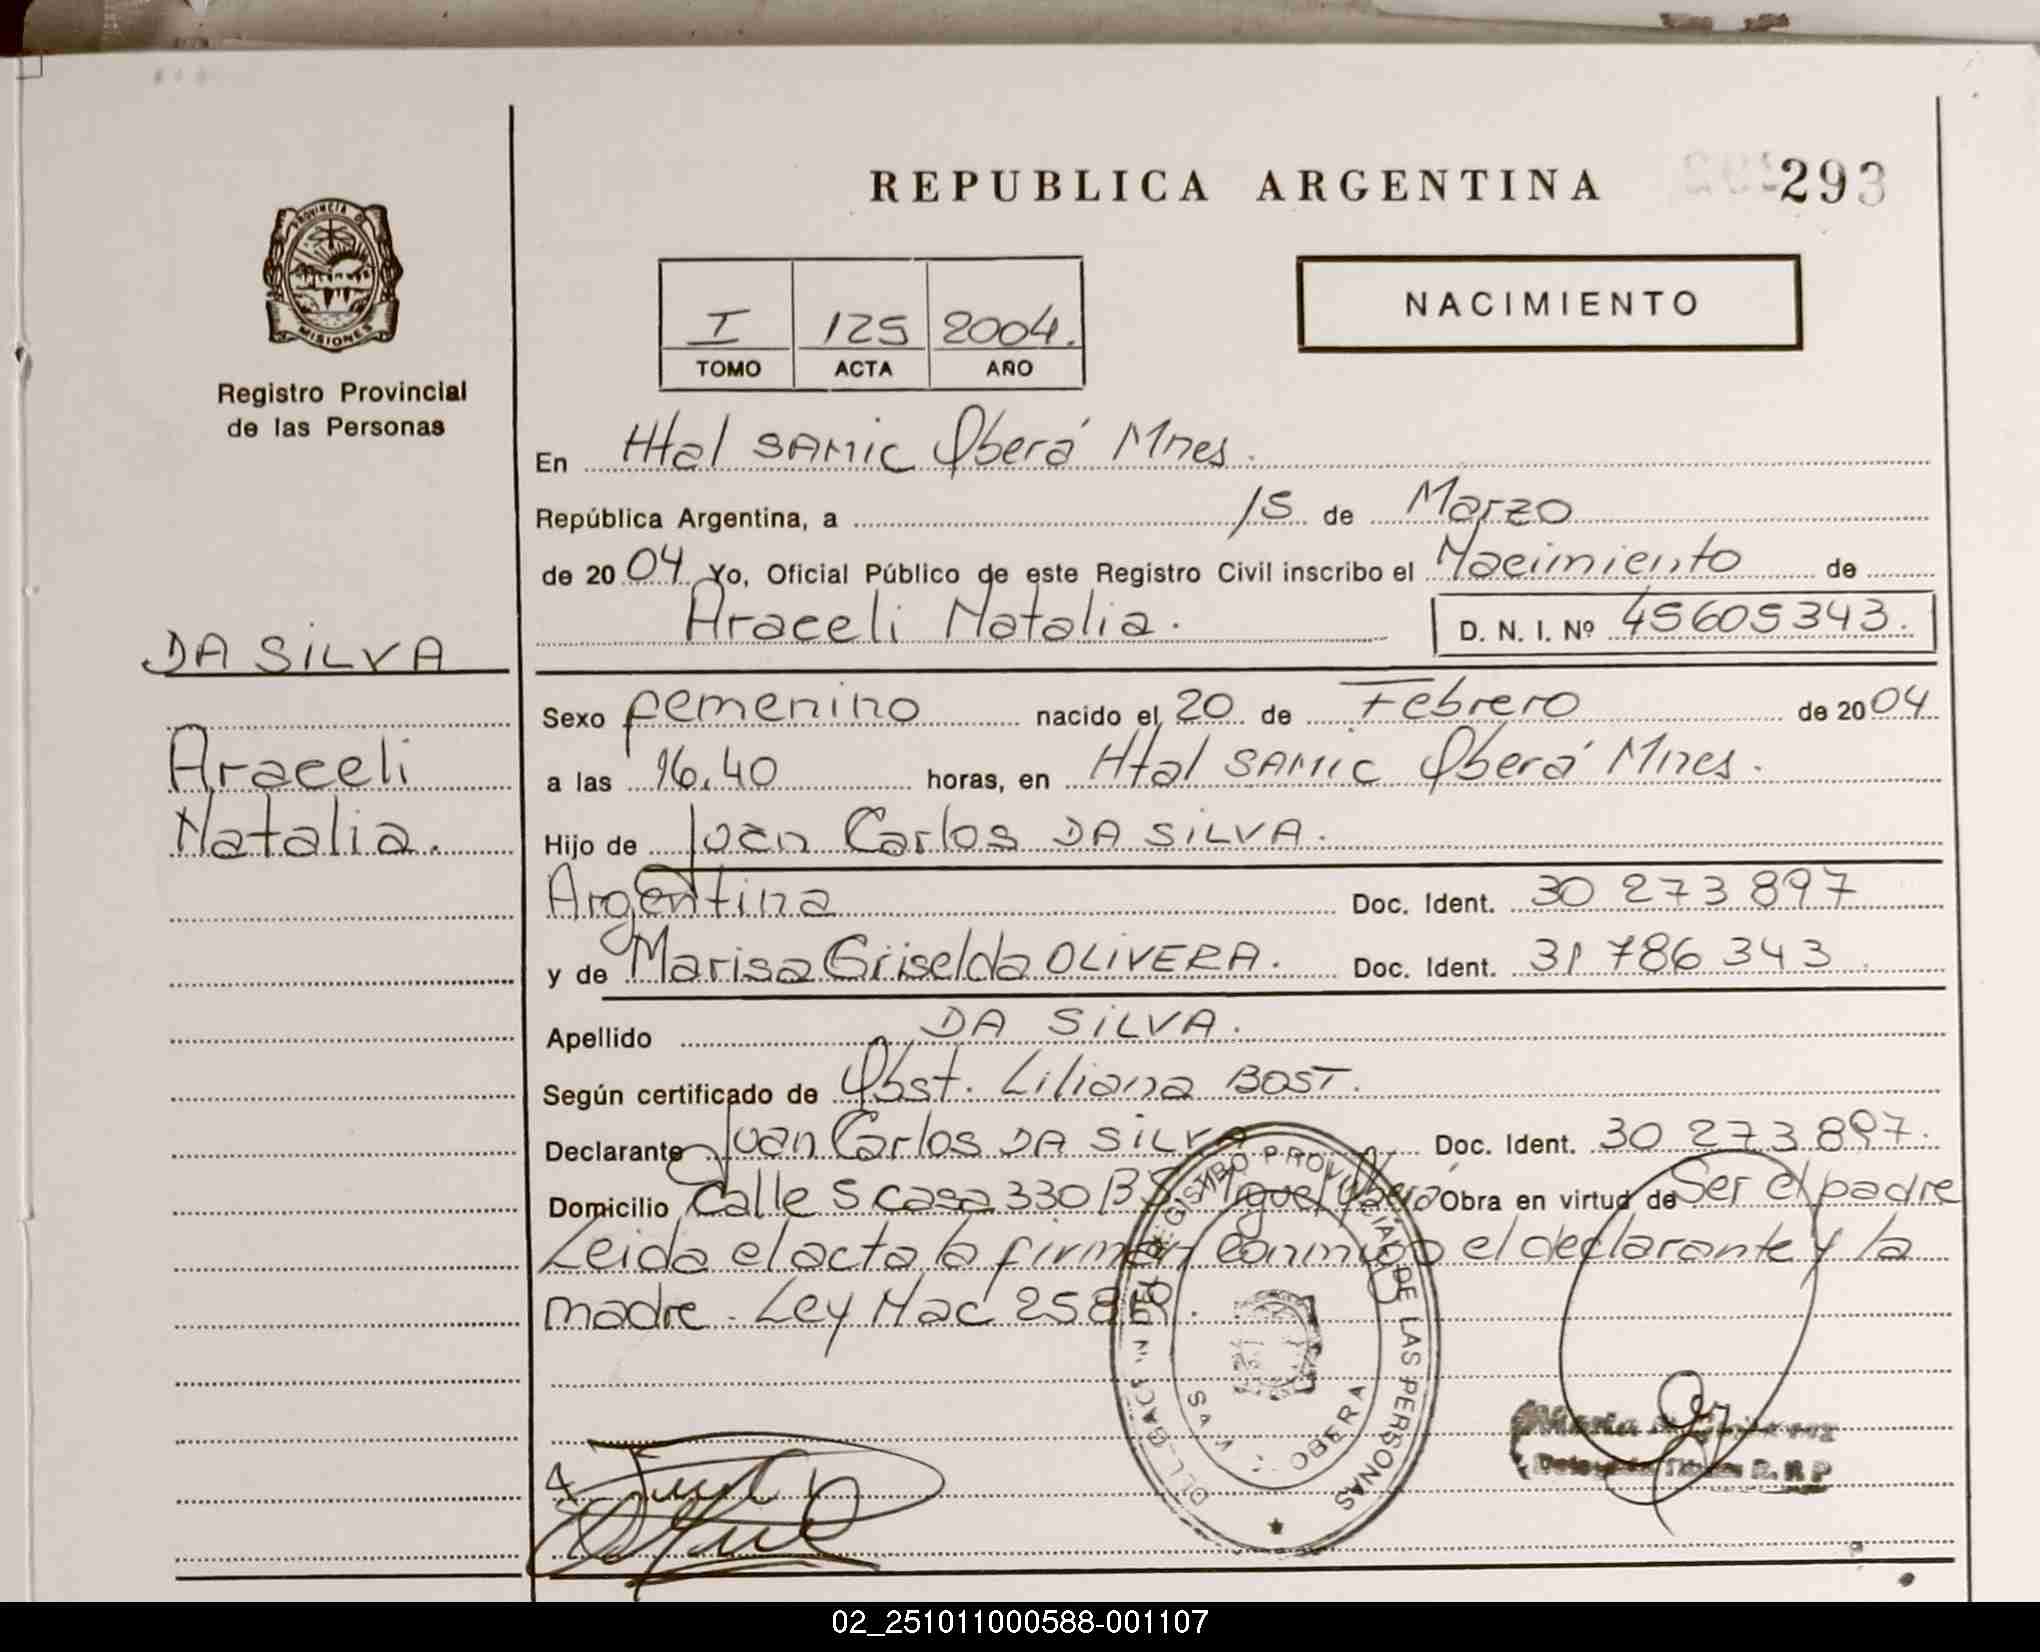 REPUBLICA ARGENTINA 293
PROVINCIA DE
MISIONES
Registro Provincial
de las Personas
I 125 2004.
TOMO ACTA AÑO
NACIMIENTO
En Htal SAMIC Oberá Mnes.
República Argentina, a 15 de Marzo
de 2004 Yo, Oficial Público de este Registro Civil inscribo el Nacimiento de
Araceli Natalia. D. N. I. Nº 45605343.
DA SILVA
Sexo femenino nacido el 20 de Febrero de 2004
Araceli
a las 16,40 horas, en Htal SAMIC Oberá Mnes.
Natalia.
Hijo de Juan Carlos DA SILVA.
Argentina Doc. Ident. 30 273 897
y de Marisa Griselda OLIVERA. Doc. Ident. 31 786 343
Apellido DA SILVA.
Según certificado de Obst. Liliana BOST.
Declarante Juan Carlos DA SILVA Doc. Ident. 30 273.897.
Domicilio Calle 5 casa 330 B S. Miguel Oberá Obra en virtud de Ser el padre
Leida el acta la firman conmigo el declarante y la
madre. Ley Nac
REGISTRO PROVINCIAL DE LAS PERSONAS
OBERA
02_251011000588-001107